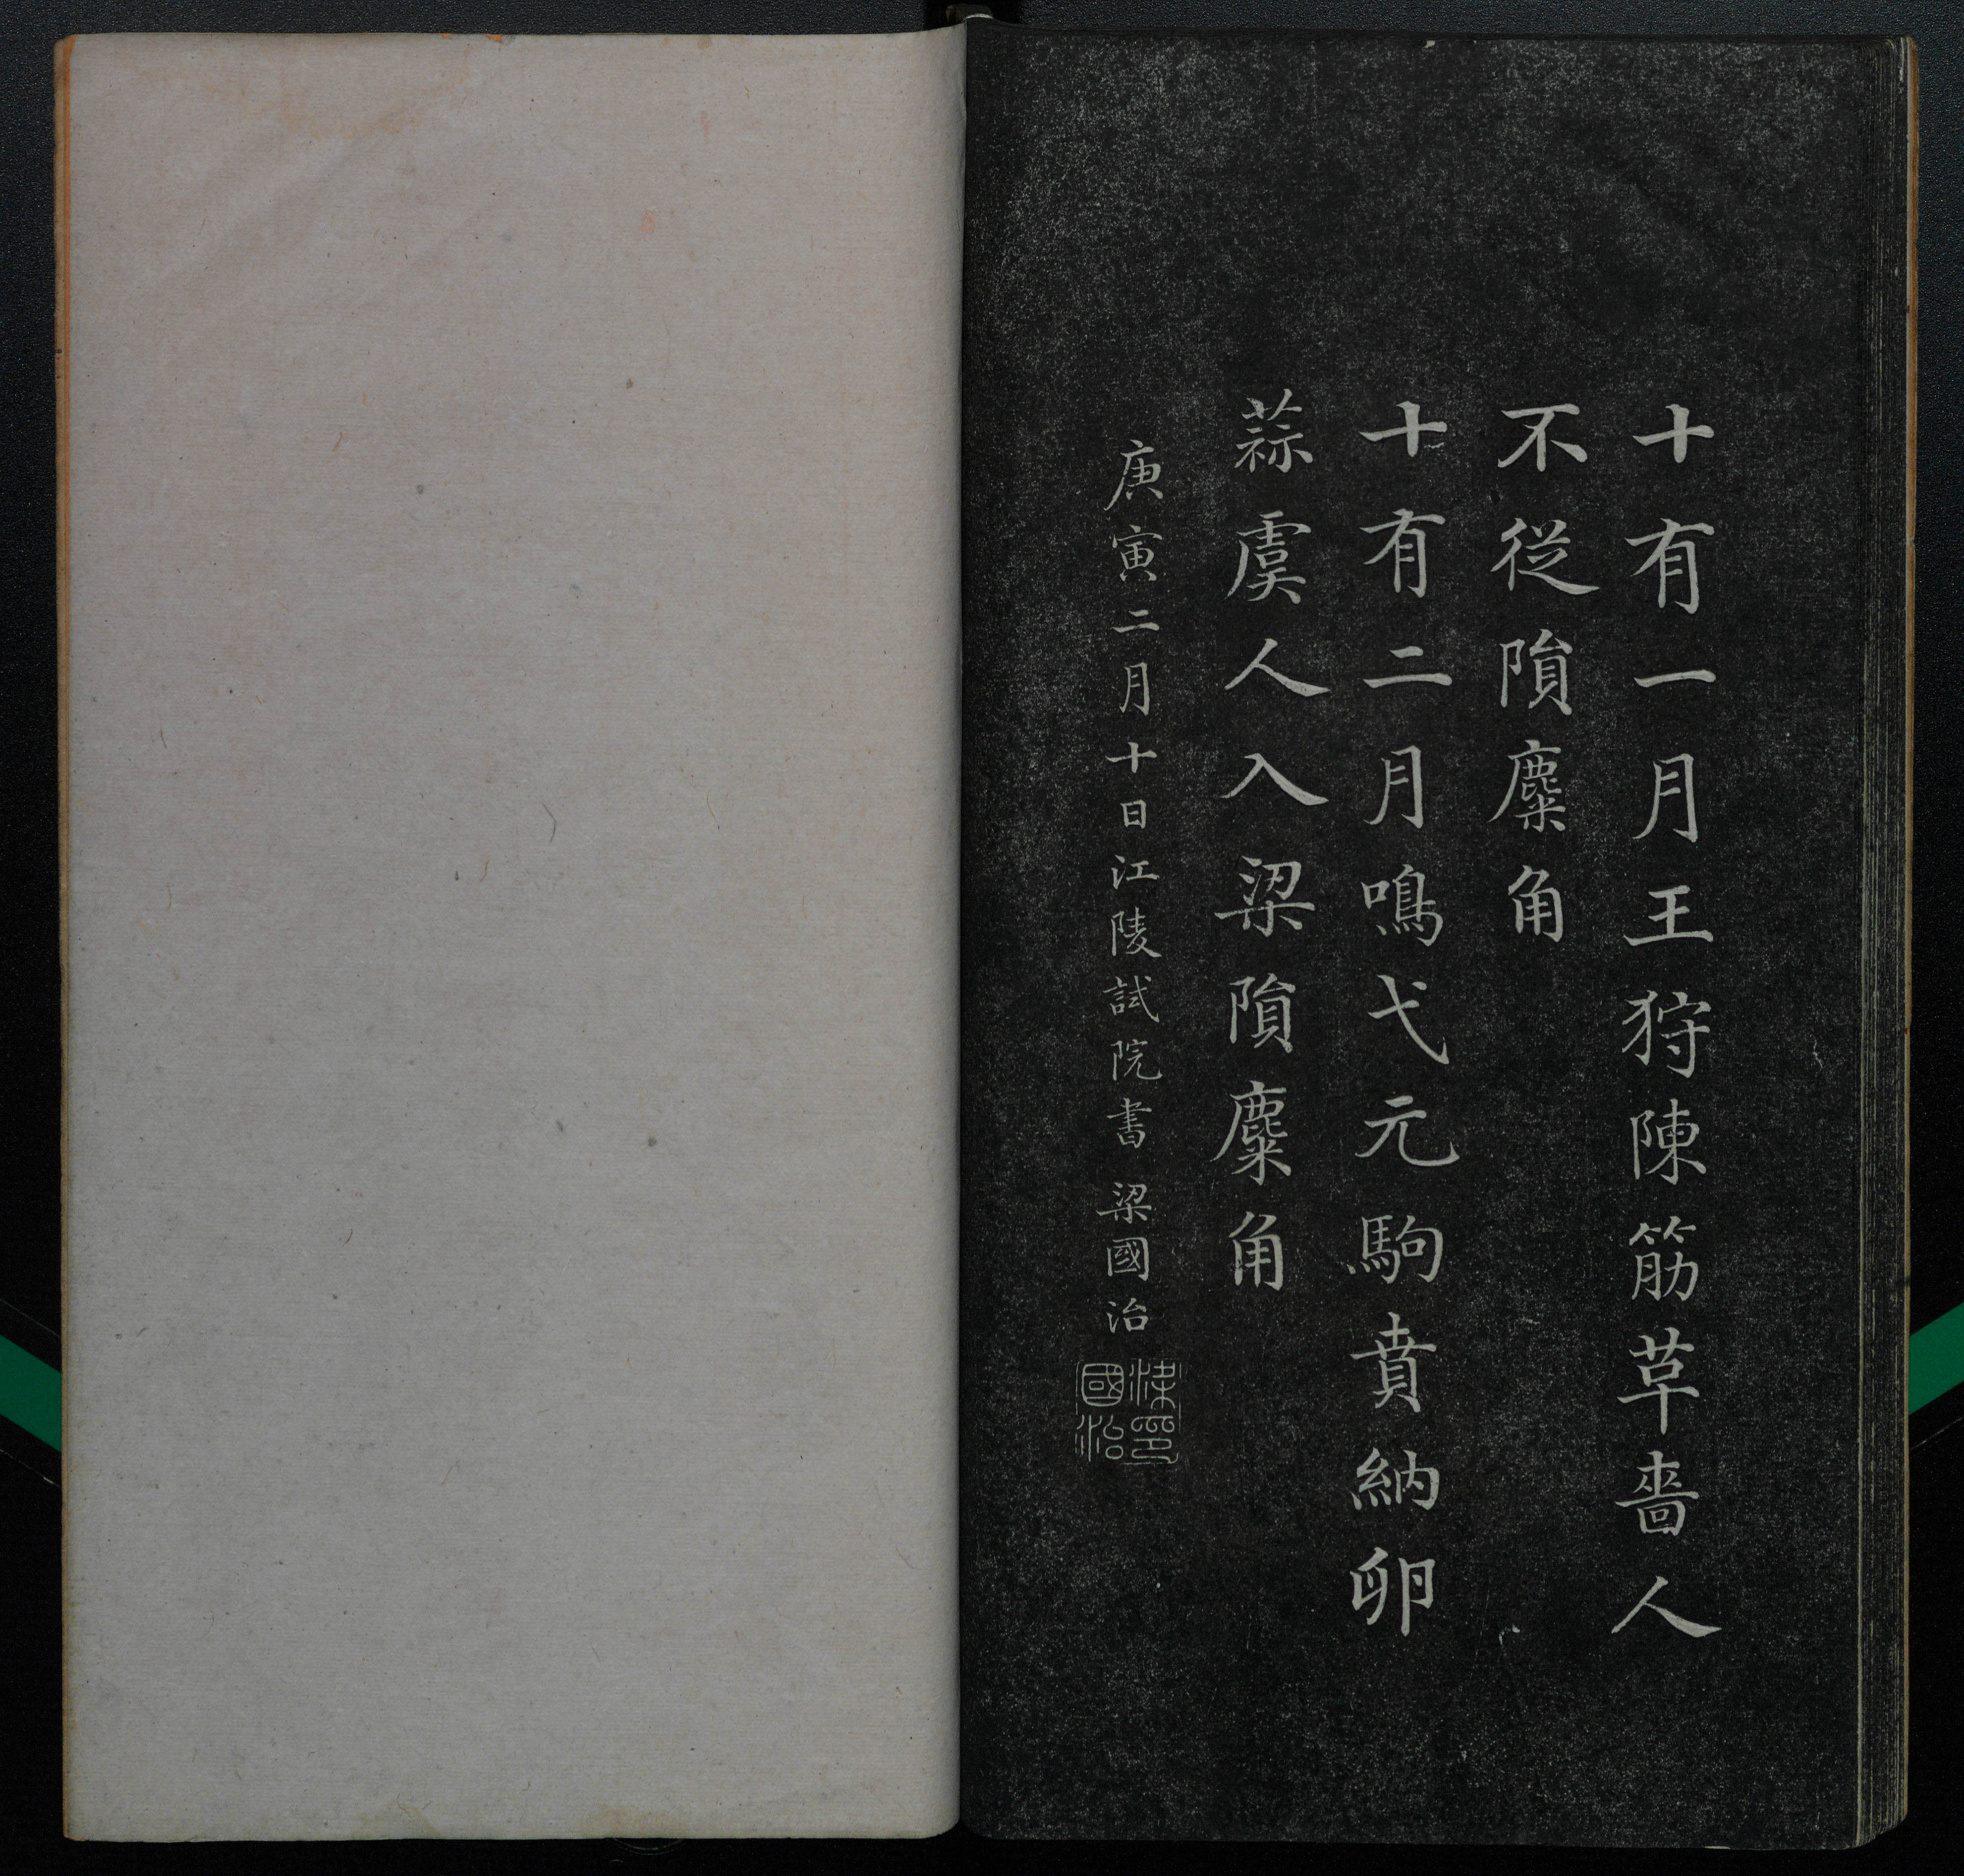 十有一月王狩陳筋草嗇人
不從隕麋角
十有二月鳴弋元駒賁納卵
蒜虞人入梁隕麋角
庚寅二月十日江陵試院書 梁國治
梁國治印